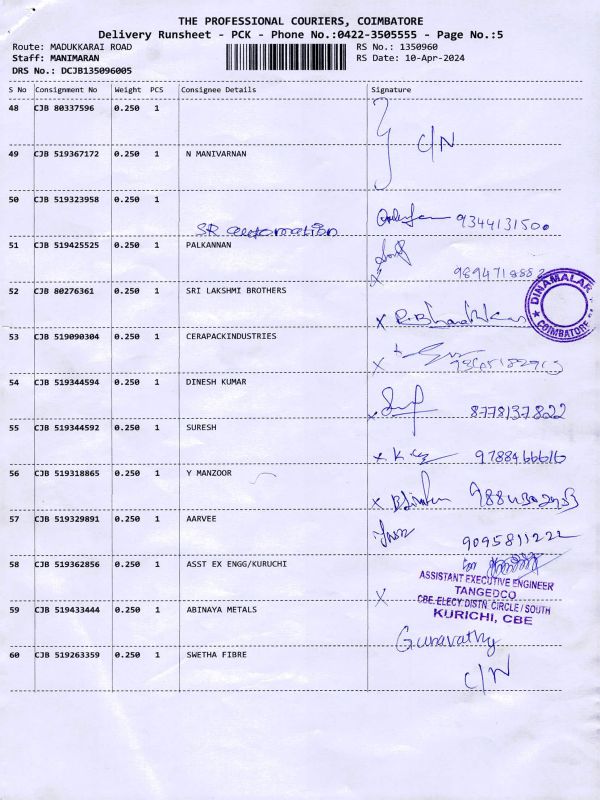 THE PROFESSIONAL COURIERS, COIMBATORE
Delivery Runsheet - PCK - Phone No.:0422-3505555 - Page No.:5
Route: MADUKKARAI ROAD RS No.: 1350960
Staff: MANIMARAN RS Date: 10-Apr-2024
DRS No.: DCJB135096005
S No Consignment No Weight PCS Consignee Details Signature
48 CJB 80337596 0.250 1
C/N
49 CJB 519367172 0.250 1 N MANIVARNAN
50 CJB 519323958 0.250 1
SR automation 9344131500
51 CJB 519425525 0.250 1 PALKANNAN
52 CJB 80276361 0.250 1 SRI LAKSHMI BROTHERS
DINAMALAR
COIMBATORE
53 CJB 519090304 0.250 1 CERAPACKINDUSTRIES
54 CJB 519344594 0.250 1 DINESH KUMAR
8778137822
55 CJB 519344592 0.250 1 SURESH
9788466616
56 CJB 519318865 0.250 1 Y MANZOOR
57 CJB 519329891 0.250 1 AARVEE
9095811222
58 CJB 519362856 0.250 1 ASST EX ENGG/KURUCHI
ASSISTANT EXECUTIVE ENGINEER
TANGEDCO
CBE. ELECY. DISTN. CIRCLE / SOUTH
KURICHI, CBE
59 CJB 519433444 0.250 1 ABINAYA METALS
Gunavathy
60 CJB 519263359 0.250 1 SWETHA FIBRE
C/N